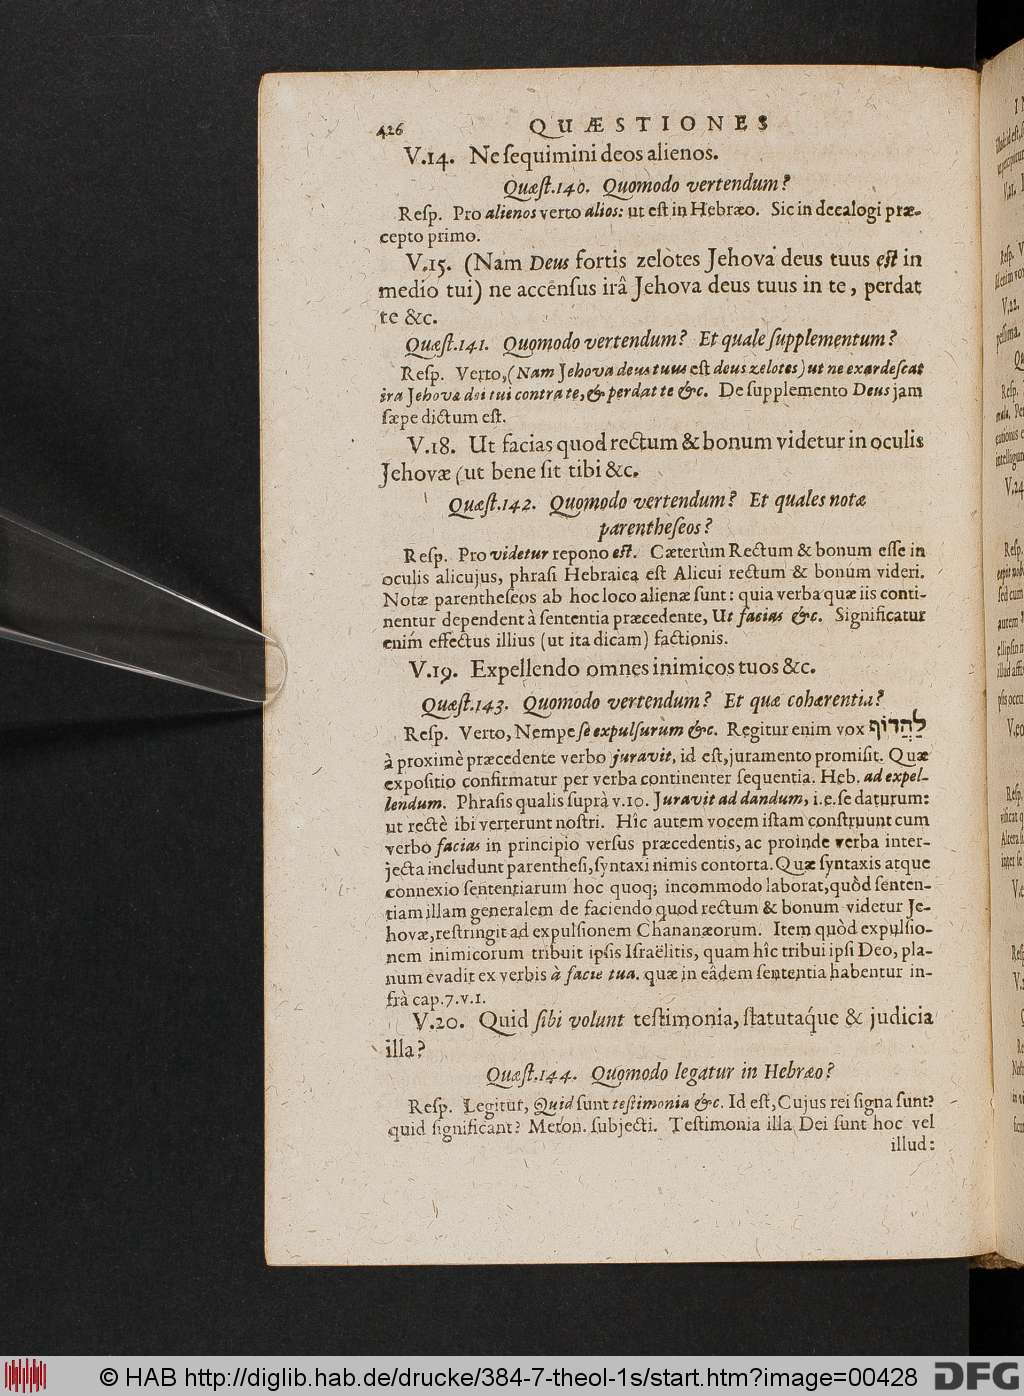 426 QUÆSTIONES
V.14. Ne ſequimini deos alienos.
Quæſt.140. Quomodo vertendum?
Reſp. Pro alienos verto alios: ut eſt in Hebræo. Sic in decalogi præ-
cepto primo.
V.15. (Nam Deus fortis zelòtes Jehova deus tuus eſt in
medio tui) ne accenſus irâ Jehova deus tuus in te, perdat
te &c.
Quæſt.141. Quomodo vertendum? Et quale ſupplementum?
Reſp. Verto, (Nam Jehova deus tuus eſt deus zelotes) ut ne exardeſcat
ira Jehovæ dei tui contra te, & perdat te &c. De ſupplemento Deus jam
ſæpe dictum eſt.
V.18. Ut facias quod rectum & bonum videtur in oculis
Jehovæ (ut bene ſit tibi &c.
Quæſt.142. Quomodo vertendum? Et quales notæ
parentheſeos?
Reſp. Pro videtur repono eſt. Cæterùm Rectum & bonum eſſe in
oculis alicujus, phraſi Hebraica eſt Alicui rectum & bonum videri.
Notæ parentheſeos ab hoc loco alienæ ſunt: quia verba quæ iis conti-
nentur dependent à ſententia præcedente, Ut facias &c. Significatur
enim effectus illius (ut ita dicam) factionis.
V.19. Expellendo omnes inimicos tuos &c.
Quæſt.143. Quomodo vertendum? Et quæ cohærentia?
Reſp. Verto, Nempe ſe expulſurum &c. Regitur enim vox לַהֲדוֹף
à proximè præcedente verbo juravit, id eſt, juramento promiſit. Quæ
expoſitio confirmatur per verba continenter ſequentia. Heb. ad expel-
lendum. Phraſis qualis ſuprà v.10. Juravit ad dandum, i.e. ſe daturum:
ut rectè ibi verterunt noſtri. Hîc autem vocem iſtam conſtruunt cum
verbo facias in principio verſus præcedentis, ac proinde verba inter-
jecta includunt parentheſi, ſyntaxi nimis contorta. Quæ ſyntaxis atque
connexio ſententiarum hoc quoq; incommodo laborat, quòd ſenten-
tiam illam generalem de faciendo quod rectum & bonum videtur Je-
hovæ, reſtringit ad expulſionem Chananæorum. Item quòd expulſio-
nem inimicorum tribuit ipſis Iſraëlitis, quam hîc tribui ipſi Deo, pla-
num evadit ex verbis à facie tua. quæ in eâdem ſententia habentur in-
frà cap.7.v.1.
V.20. Quid ſibi volunt teſtimonia, ſtatutaque & judicia
illa?
Quæſt.144. Quomodo legatur in Hebræo?
Reſp. Legitur, Quid ſunt teſtimonia &c. Id eſt, Cujus rei ſigna ſunt?
quid ſignificant? Meton. ſubjecti. Teſtimonia illa Dei ſunt hoc vel
illud:
© HAB http://diglib.hab.de/drucke/384-7-theol-1s/start.htm?image=00428 DFG